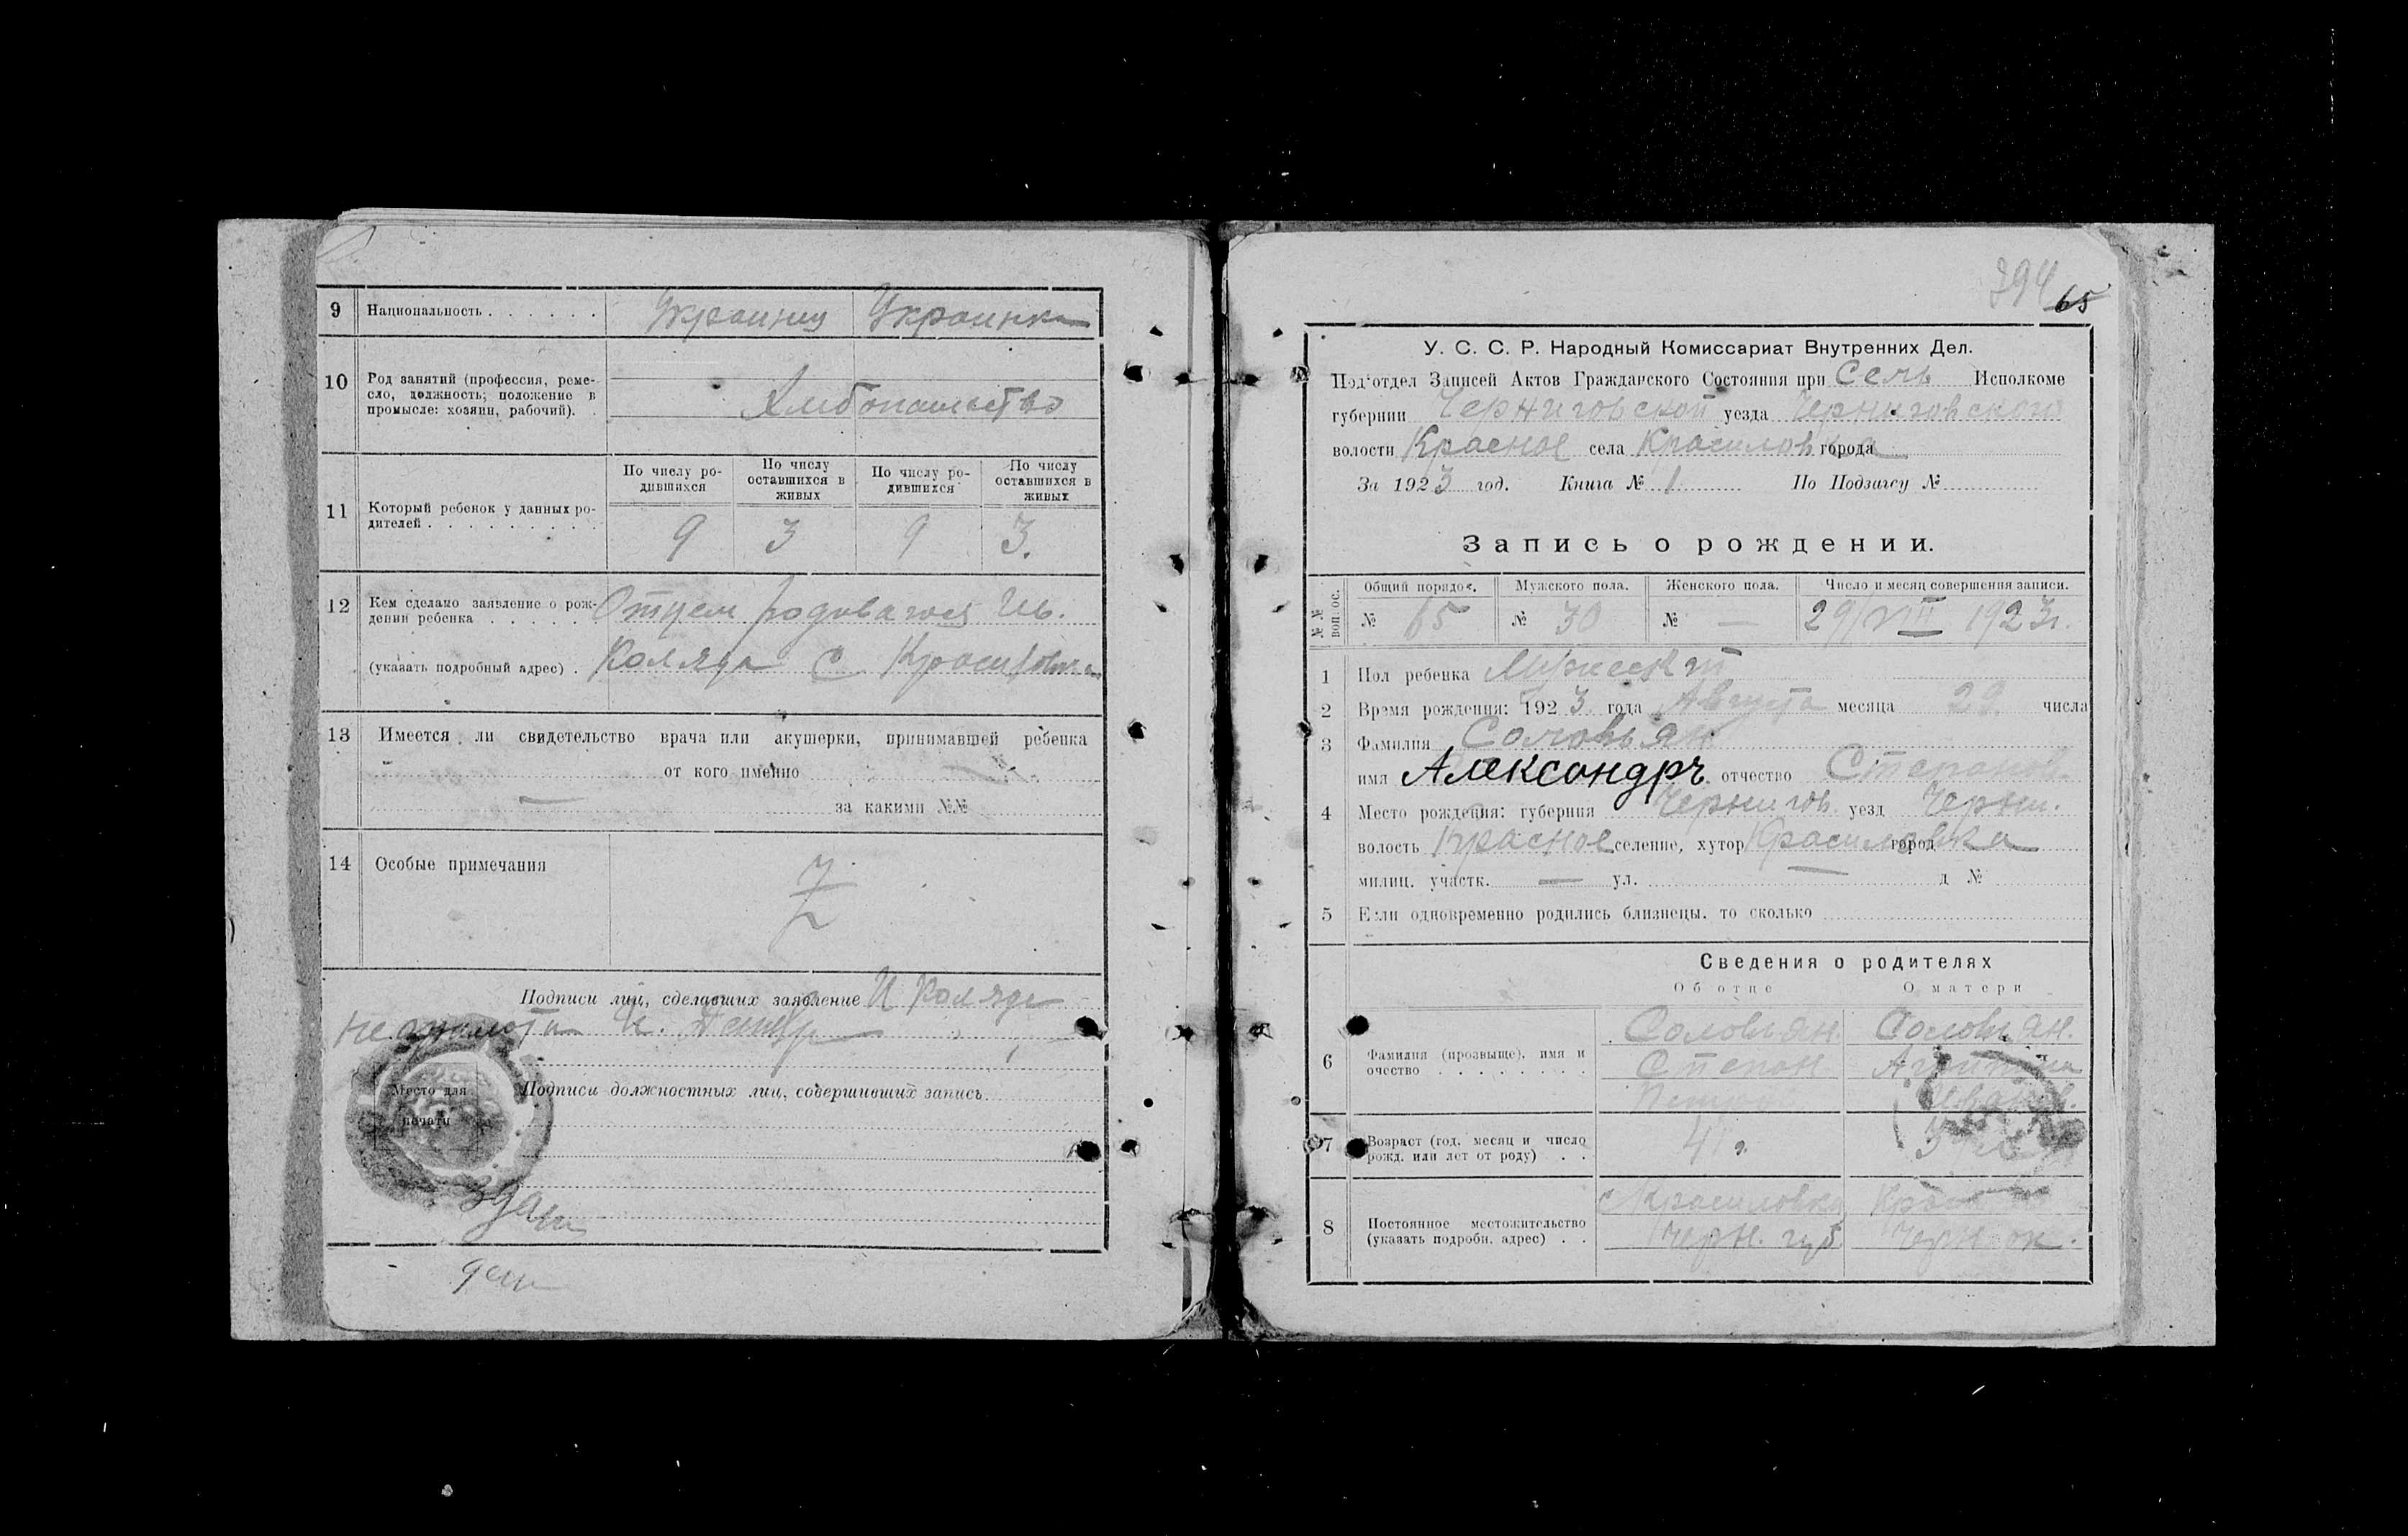 9 Национальность . . . . . . Украинец Украинка
10 Род занятий (профессия, реме-
сло, должность; положение в
промысле: хозяин, рабочий). .
Хлебопашество
11 Который ребенок у данных ро-
дителей . . . . . . . . . .
По числу ро-
дившихся
По числу
оставшихся в
живых
По числу ро-
дившихся
По числу
оставшихся в
живых
9 3 9 3.
12 Кем сделано заявление о рож-
дении ребенка . . . . . . Отцем
(указать подробный адрес) . Коляда с Красиловка
13 Имеется ли свидетельство врача или акушерки, принимавшей ребенка
— от кого именно —
— за какими №№
14 Особые примечания
Подписи лиц, сделавших заявление И Коляда
Место для
печати
Подписи должностных лиц, совершивших запись
394 65
У. С. С. Р. Народный Комиссариат Внутренних Дел.
Под'отдел Записей Актов Гражданского Состояния при Сель Исполкоме
губернии Черниговской уезда Черниговского
волости Красное села Красиловка города —
За 1923 год. Книга № 1 По Подзагсу №
Запись о рождении.
№№ воп. ос.
Общий порядок. Мужского пола. Женского пола. Число и месяц совершения записи.
№ 65 № 30 № — 29/VIII 1923 г.
1 Пол ребенка Мужеский
2 Время рождения: 1923 года Августа месяца 29 числа
3 Фамилия Соловьян
имя Александръ отчество Степанов.
4 Место рождения: губерния Чернигов. уезд Черни.
волость Красное селение, хутор Красиловка город —
милиц. участк. — ул. — д №
5 Если одновременно родились близнецы, то сколько
Сведения о родителях
Об отце О матери
6 Фамилия (прозвыще), имя и
очество . . . . . . . . .
Соловьян. Соловьян.
Степан
Иванов.
7 Возраст (год, месяц и число
рожд. или лет от роду) . .
41 г.
8 Постоянное местожительство
(указать подробн. адрес) . .
с Красиловка
Черн. губ. Черн. ок.